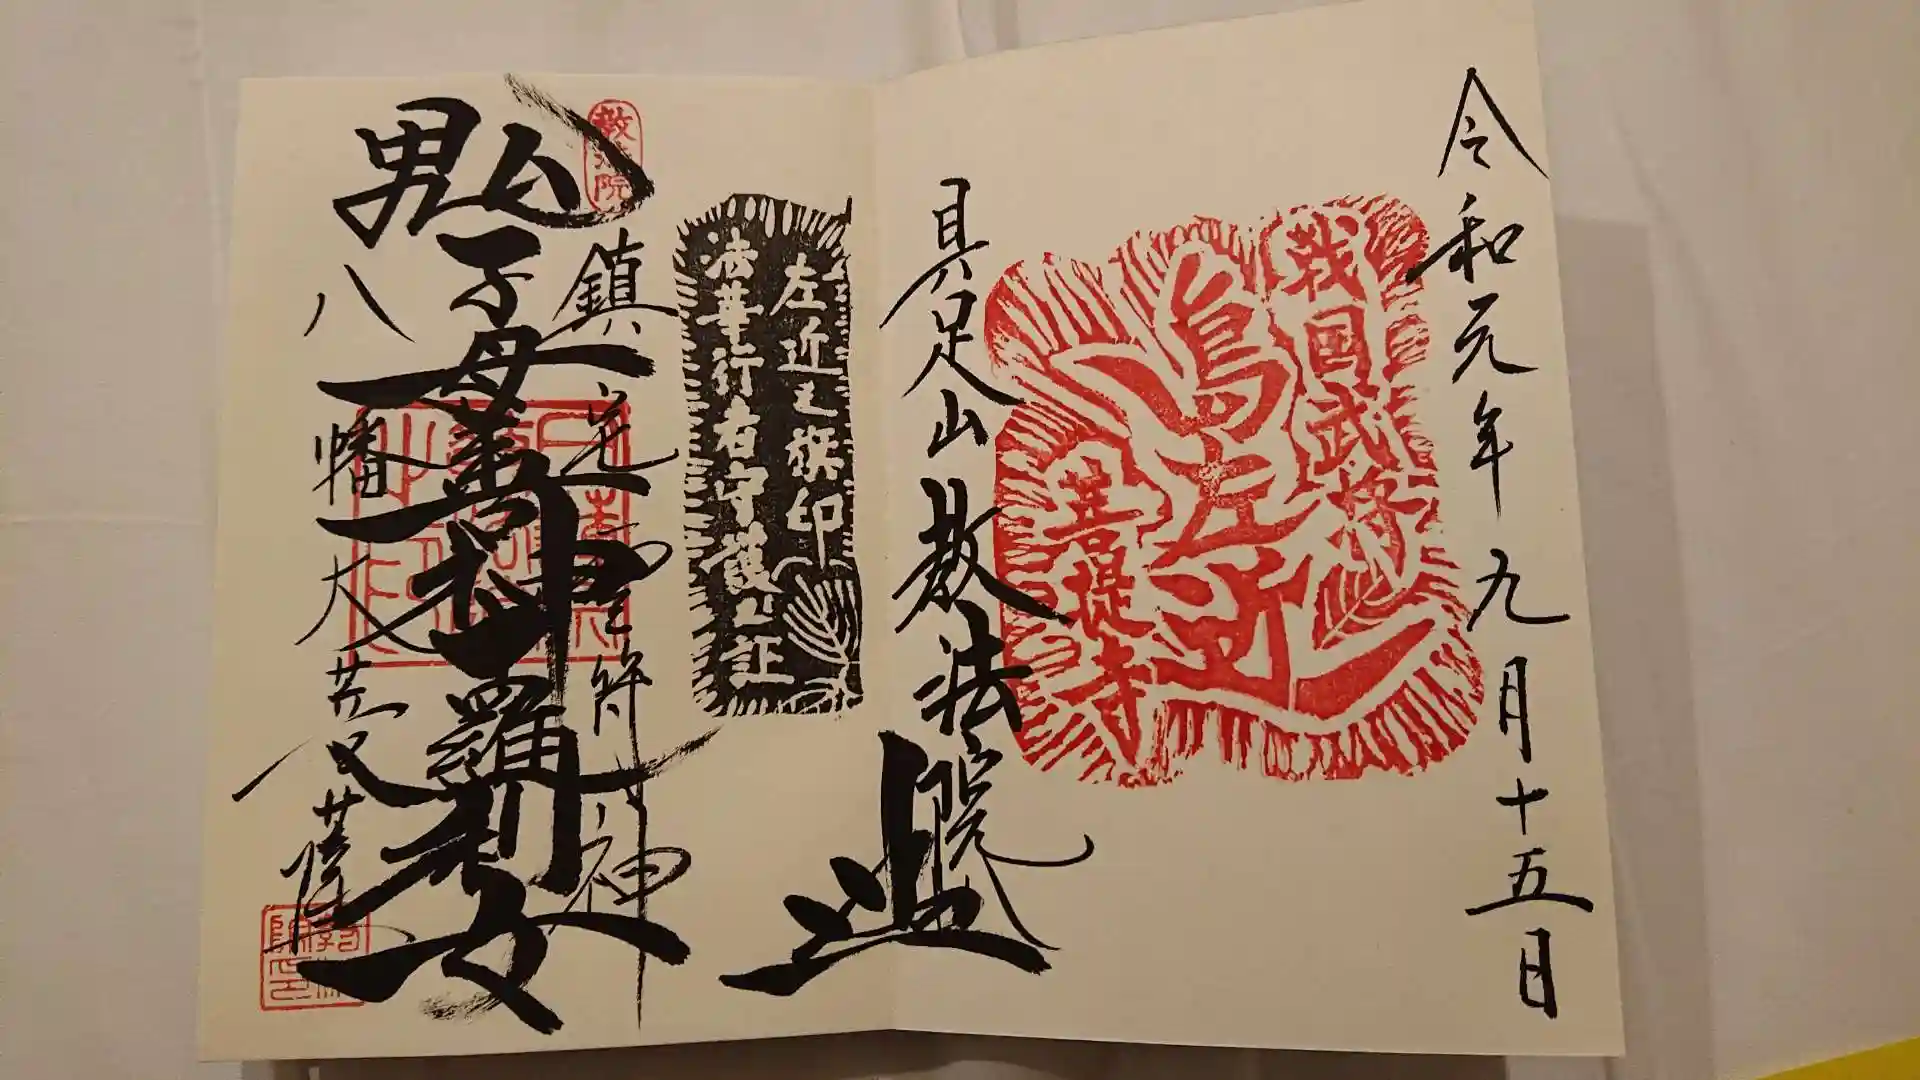 令和元年九月十五日
戦国武将
島左近
菩提寺
具足山教法院
左近之旗印
法華行者守護之証
教法院
鎮宅霊符神
鬼子母善神
羅刹女
八幡大菩薩